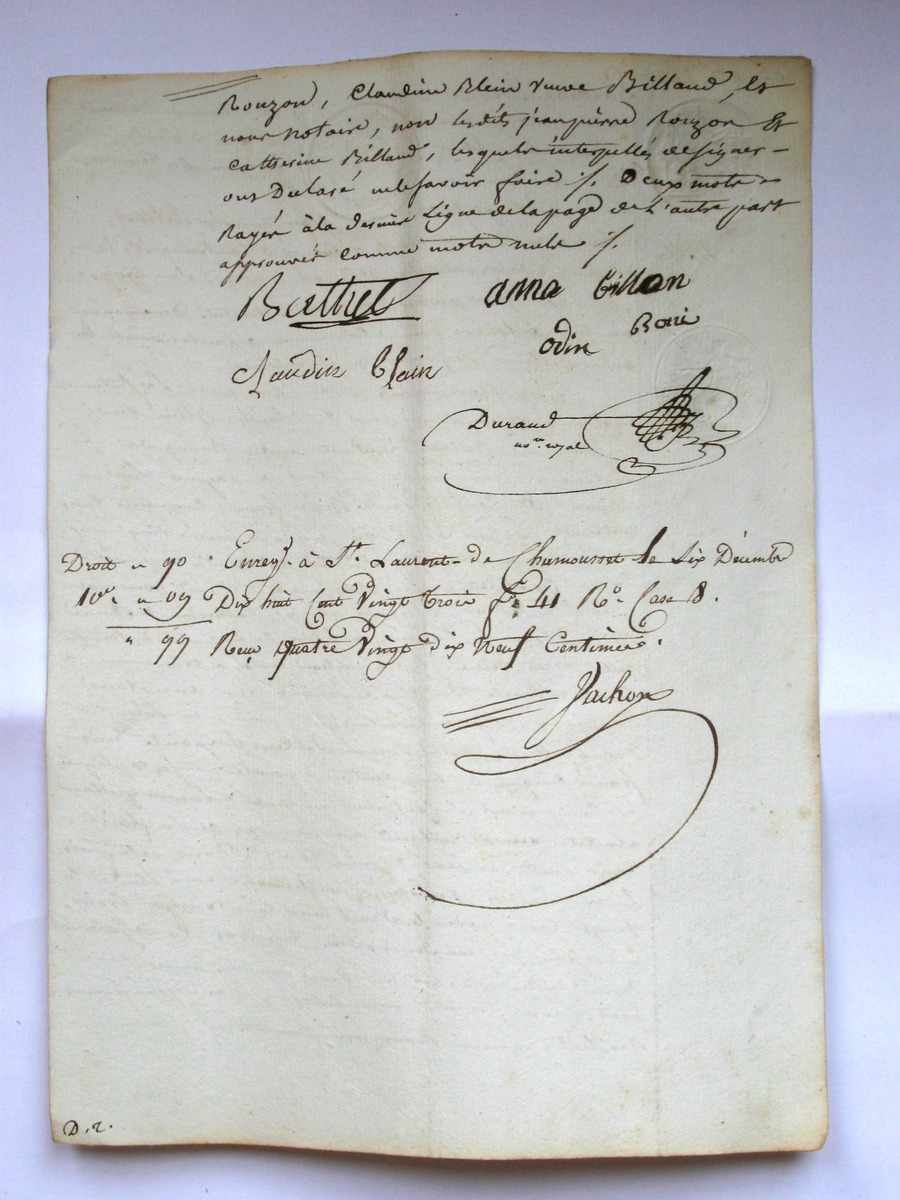 Rouzon, Claudine Blein veuve Billaud, et
nous notaire, non lesdits jeanpierre Rouzon et
Catherine Billaud, lesquels interpellés de signer
ont Declaré ne le savoir faire ./. Deux mots
Rayés à la derniere Ligne de la page de L'autre part
approuvés comme mots nuls ./.
Berthet anna billon
odin Boiri
claudin blain
Duraud
nore. royal
Droit " 90 . Enreg. à St. Laurent-de Chamousset le Six Décembre
10e. " 09 Dix huit Cent Vingt trois fo. 41 Ro. Case 8.
" 99 Reçu quatre Vingt dix Neuf Centimes.
Jachon
D. 2.